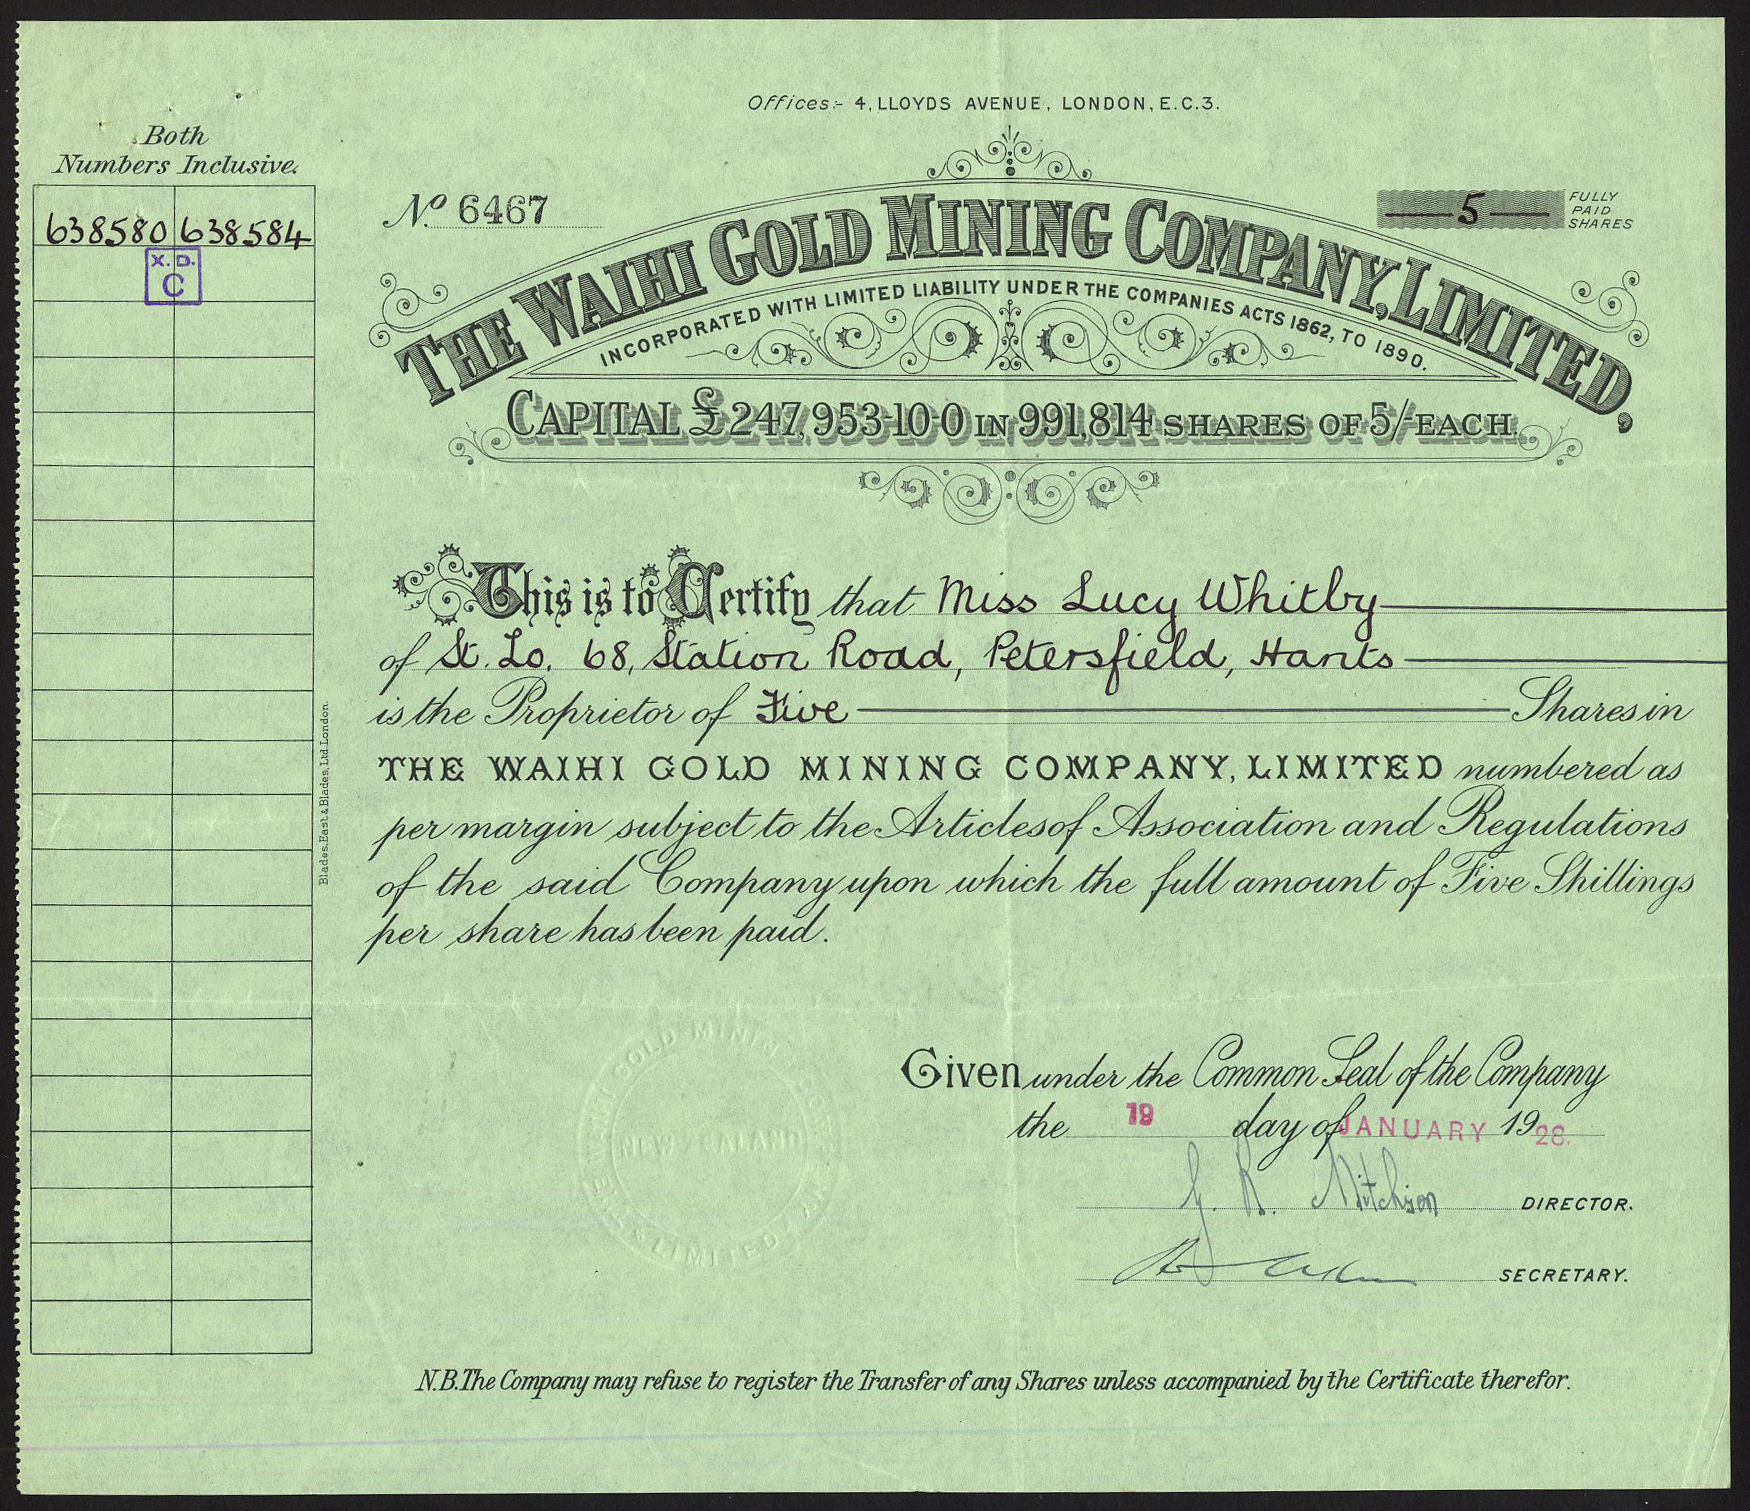 Offices:- 4, LLOYDS AVENUE, LONDON, E.C.3.
Both
Numbers Inclusive.
638580 638584
X.D.
C
No 6467
5
FULLY
PAID
SHARES
THE WAIHI GOLD MINING COMPANY, LIMITED,
INCORPORATED WITH LIMITED LIABILITY UNDER THE COMPANIES ACTS 1862, TO 1890.
CAPITAL £247,953-10-0 IN 991,814 SHARES OF 5/- EACH.
This is to Certify that Miss Lucy Whitby
of St. Lo. 68, Station Road, Petersfield, Hants
is the Proprietor of Five Shares in
THE WAIHI GOLD MINING COMPANY, LIMITED numbered as
per margin subject to the Articles of Association and Regulations
of the said Company upon which the full amount of Five Shillings
per share has been paid.
Blades, East & Blades, Ltd London.
GOLD MINING
NEW ZEALAND
LIMITED
Given under the Common Seal of the Company
the 19 day of JANUARY 1928.
G. R. Mitchison DIRECTOR.
SECRETARY.
N.B. The Company may refuse to register the Transfer of any Shares unless accompanied by the Certificate therefor.